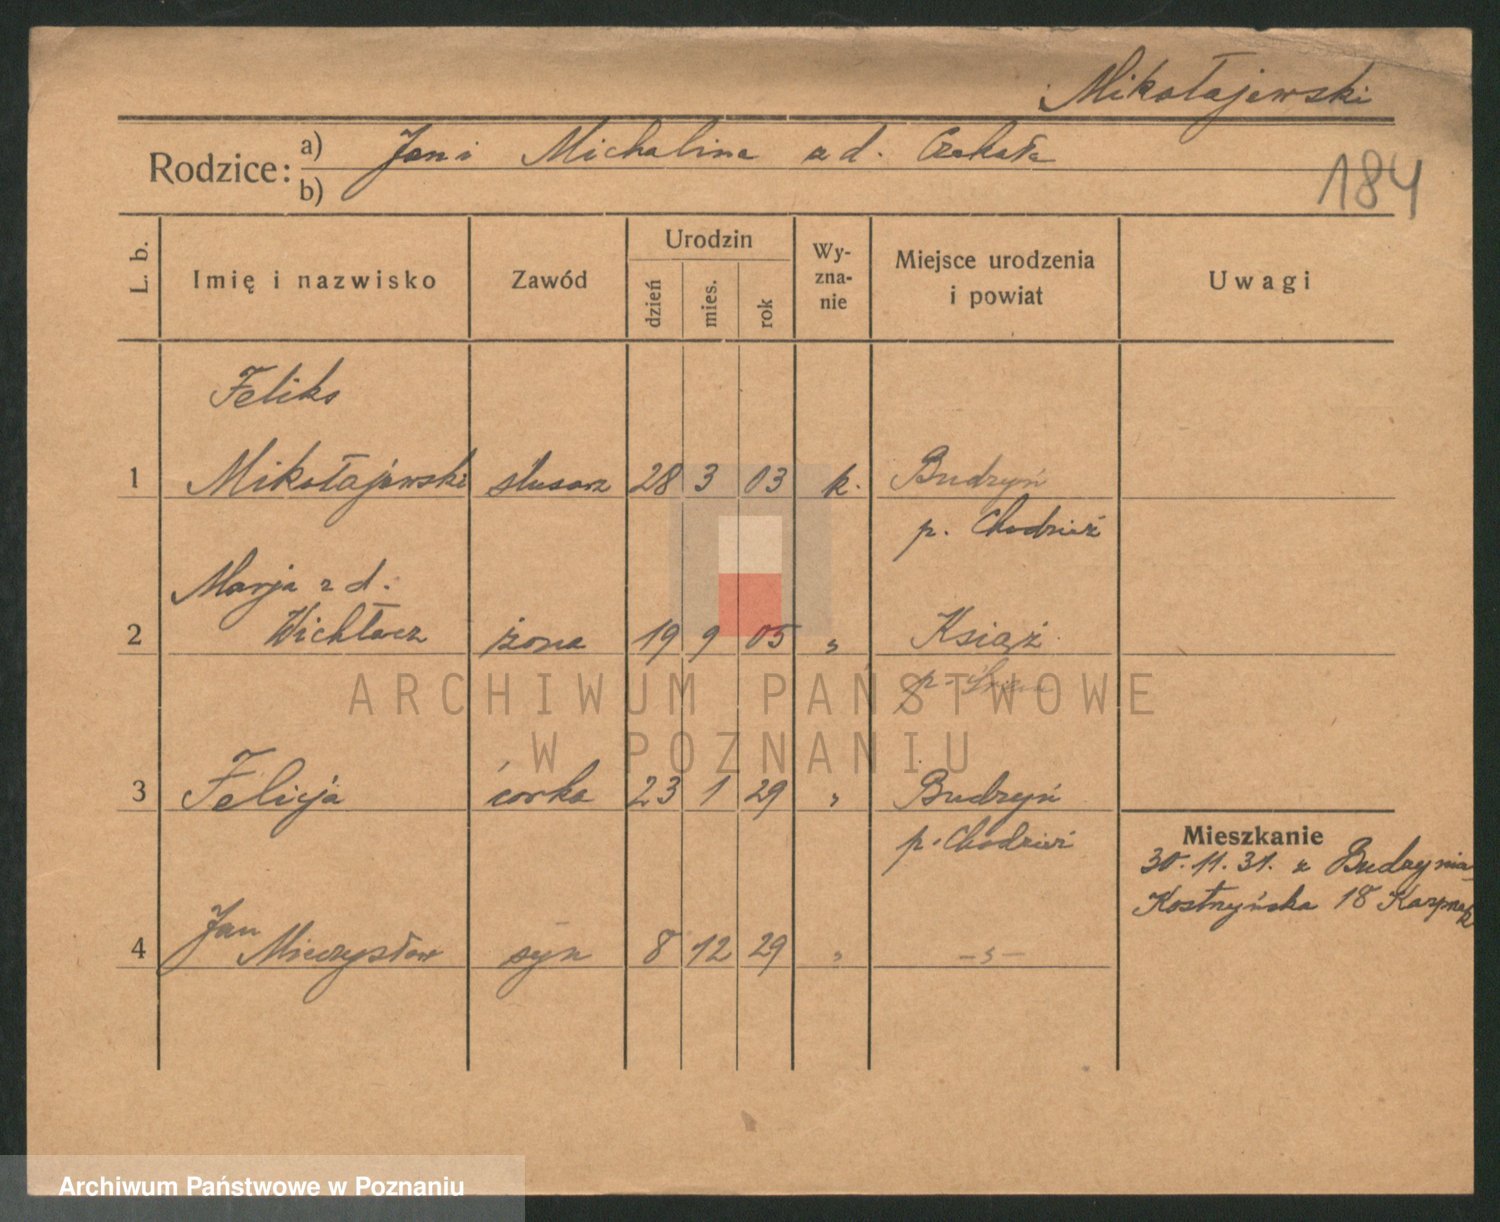 Mikołajewski
Rodzice: a) Jan i Michalina z d. Czekała
b)
184
L. b.
Imię i nazwisko
Zawód
Urodzin
dzień
mies.
rok
Wy-
zna-
nie
Miejsce urodzenia
i powiat
Uwagi
Feliks
1 Mikołajewski ślusarz 28 3 03 k. Budzyń
p. Chodzież
Marja z d.
2 Wichłacz żona 19 9 05 " Książ
p. Śrem
3 Felicja córka 23 1 29 " Budzyń
p. Chodzież
Mieszkanie
30.11.31. z Budzynia
Kostrzyńska 18
Jan
4 Mieczysław syn 8 12 29 " -"-
ARCHIWUM PAŃSTWOWE
W POZNANIU
Archiwum Państwowe w Poznaniu